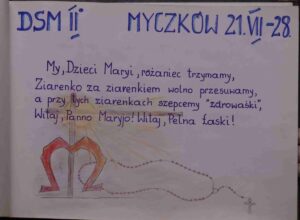 DSM II° MYCZKÓW 21.VII-28.
My, Dzieci Maryi, różaniec trzymamy,
Ziarenko za ziarenkiem wolno przesuwamy,
a przy tych ziarenkach szepcemy "zdrowaśki",
Witaj, Panno Maryjo! Witaj, Pełna Łaski!